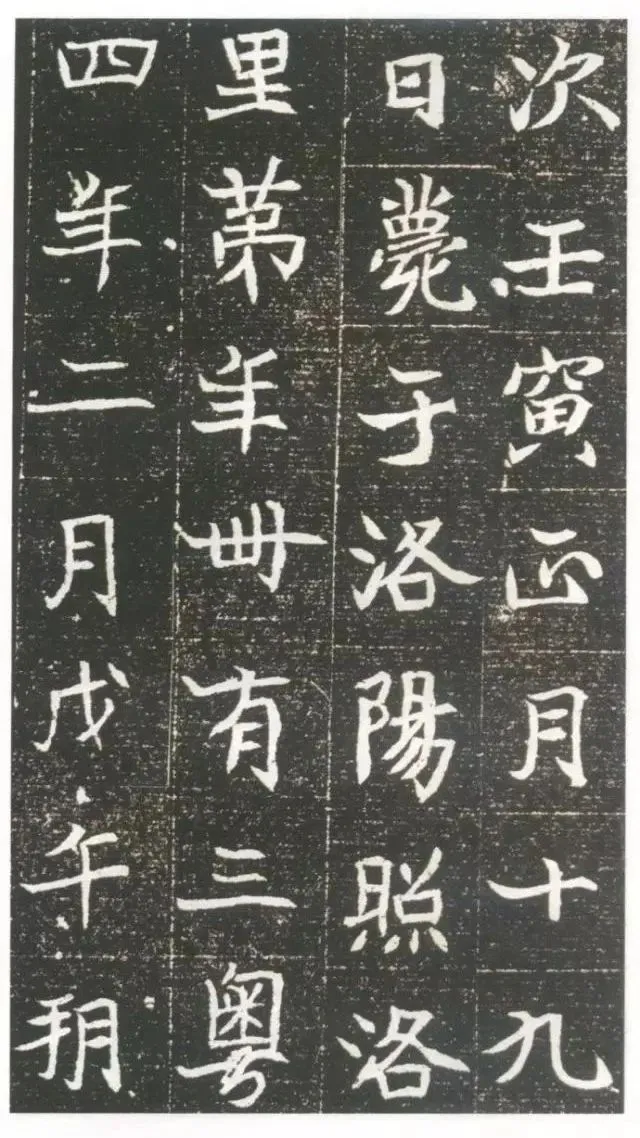 次壬寅正月十九
日薨于洛陽照洛
里苐年卌有三粤
四年二月戊午朔